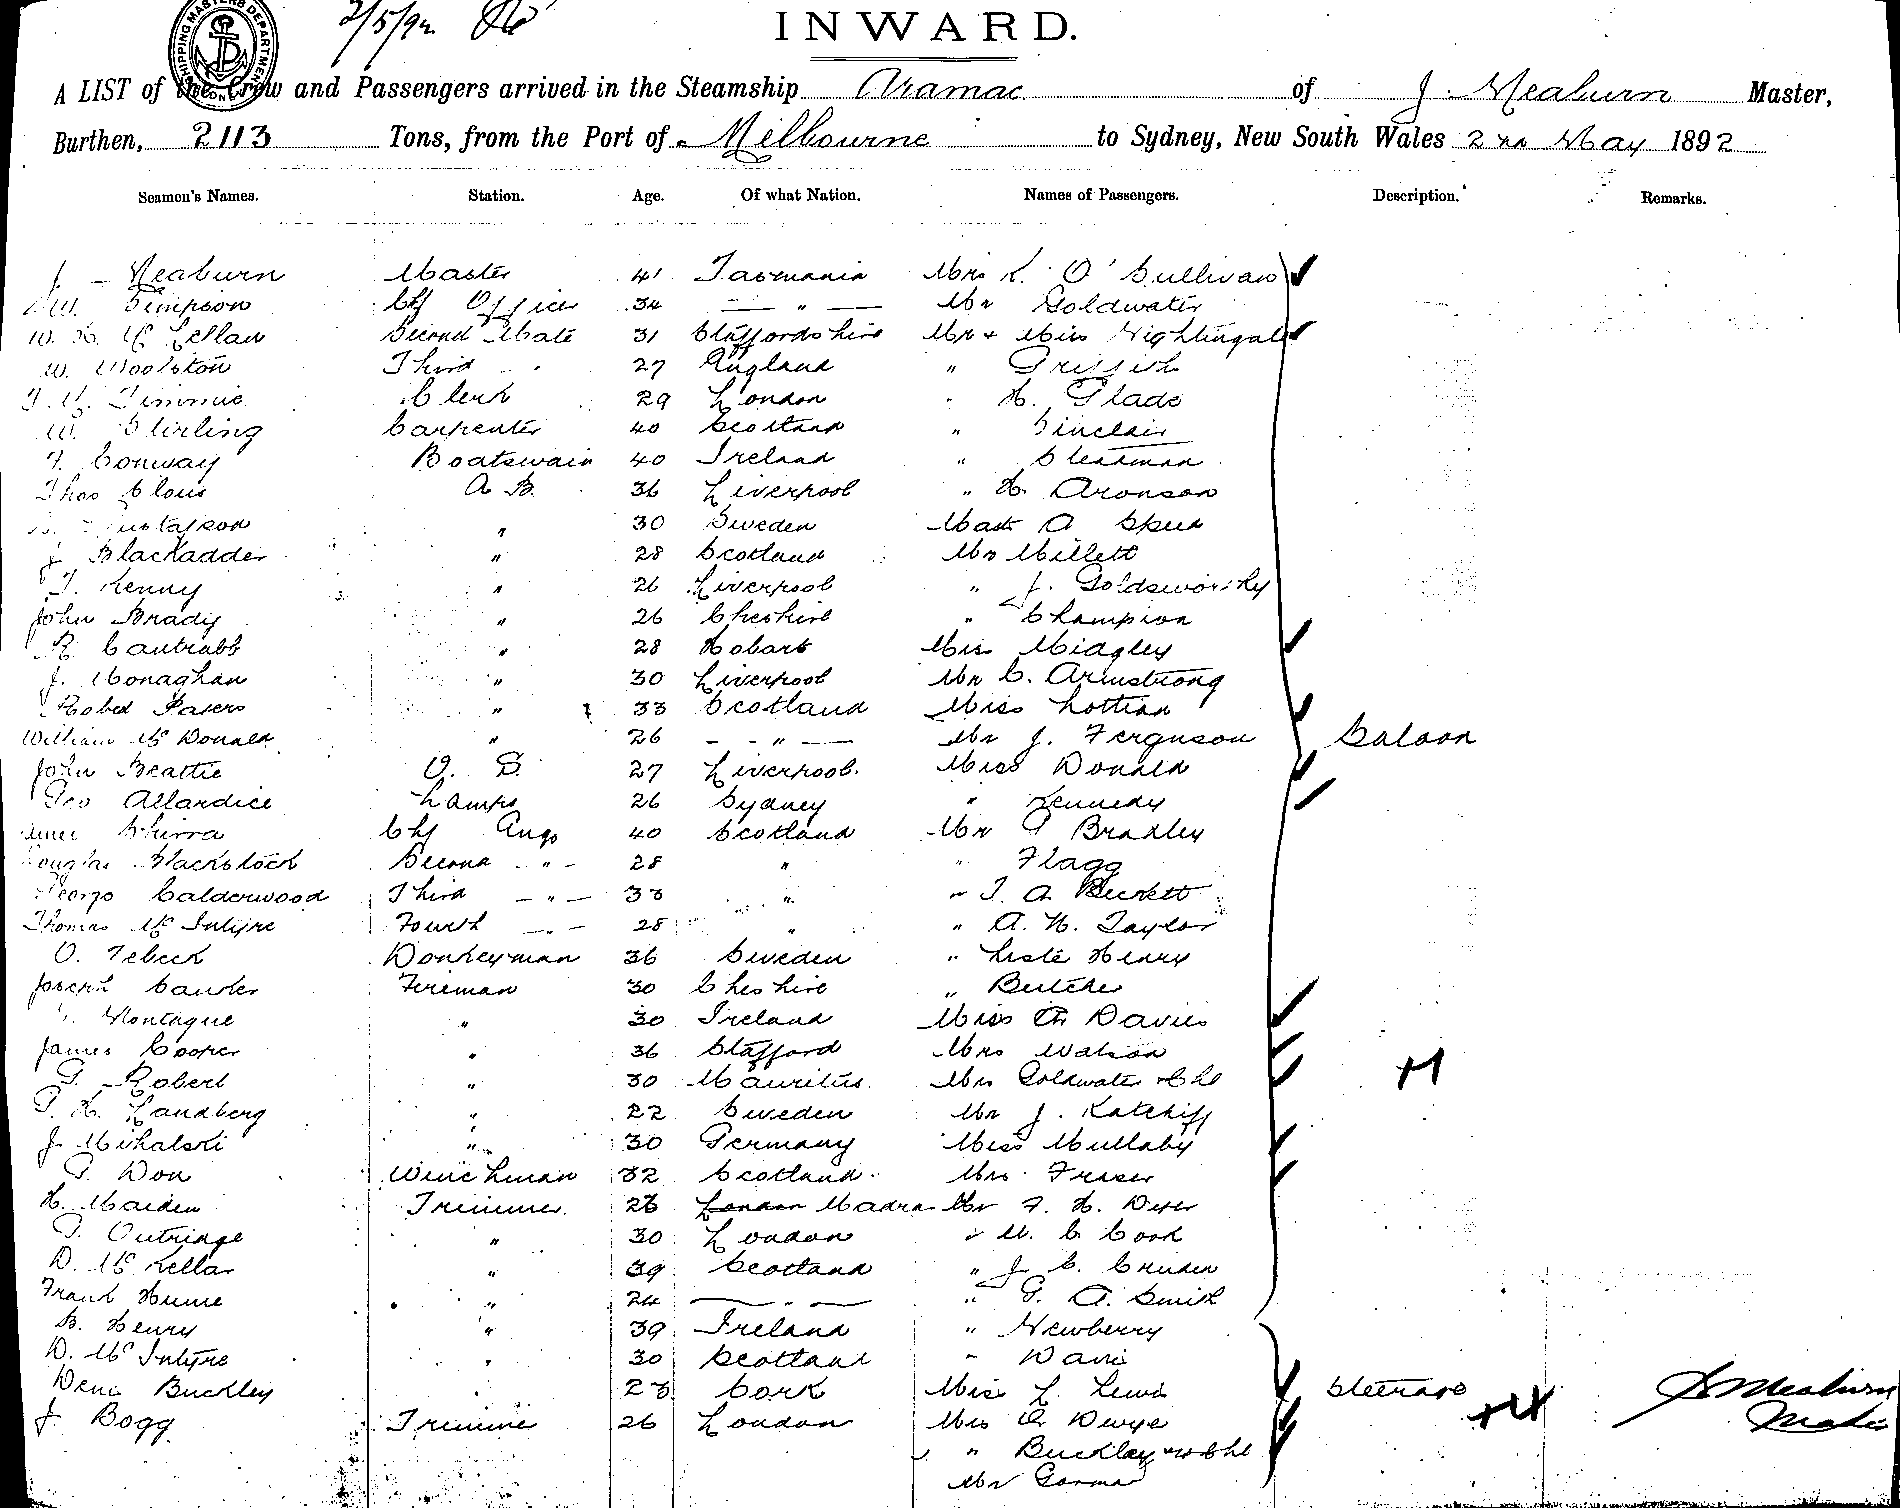 2/5/92
INWARD.
SHIPPING MASTERS DEPARTMENT
A LIST of the Crew and Passengers arrived in the Steamship Aramac of J. Meaburn Master,
Burthen, 2113 Tons, from the Port of Melbourne to Sydney, New South Wales 2nd May 1892
Seamen's Names. Station. Age. Of what Nation. Names of Passengers. Description. Remarks.
J. Meaburn Master 41 Tasmania Mrs K. O'Sullivan
Simpson Chf Officer 34 — " — Mr Goldwater
W. H. Mc Lellan Second Mate 31 Staffordshire Mr & Miss Nightingale
W. Woolston Third " 27 England " Griffith
Clerk 29 London " H. Glade
W. Stirling Carpenter 40 Scotland " Sinclair
F. Conway Boatswain 40 Ireland " Steadman
Thos A B. 36 Liverpool " H. Aronson
Gustafson " 30 Sweden Mast A
J. Blackadder " 28 Scotland Mr Millett
T. Kenny " 26 Liverpool " J. Goldsworthy
John Brady " 26 Cheshire " Champion
R. " 28 Hobart Miss Midgley
J. Monaghan " 30 Liverpool Mr C. Armstrong
Robert " 33 Scotland Miss Lottian
William Mc Donald " 26 — " — Mr J. Ferguson Saloon
John Beattie O. S. 27 Liverpool Miss Donald
Geo Allardice Lamps 26 Sydney " Kennedy
Shirra Chf Engr 40 Scotland Mr G Bradley
Douglas Blackstock Second " 28 " " Flagg
George Calderwood Third — " — 38 " " T. A. Beckett
Thomas Mc Intyre Fourth — " — 28 " " A. H. Taylor
O. Tebeck Donkeyman 36 Sweden " Henry
Joseph Fireman 30 Cheshire " Butcher
Montague " 30 Ireland Miss Davies
James Cooper " 36 Stafford Mrs Watson
G. Robert " 30 Mauritus Mrs Goldwater & Chl
G. H. Landberg " 22 Sweden Mr J. Ratcliff
J. Mihalski " 30 Germany Miss Mullaby
G. Don Winchman 32 Scotland Mrs Fraser
H. Maiden Trimmer 26 London Madra Mr F. H.
G. Outridge " 30 London " Cook
D. Mc Kellar " 39 Scotland " J. C.
Frank Hume " 24 — " — " G. A. Smith
B. Henry " 39 Ireland " Newberry
D. Mc Intyre " 30 Scotland " Davis
Buckley " Cork Miss L. Lewis Steerage J. Meaburn
J. Bogg Trimmer 26 London Mrs Dwyer Master
" Buckley & Chl
Mr Gorman